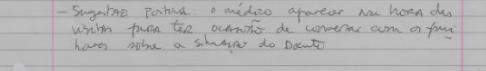 - Sugestão Positiva: o médico aparecer na hora das
visitas para ter ocasião de conversar com os fami
liares sobre a situação do Doente